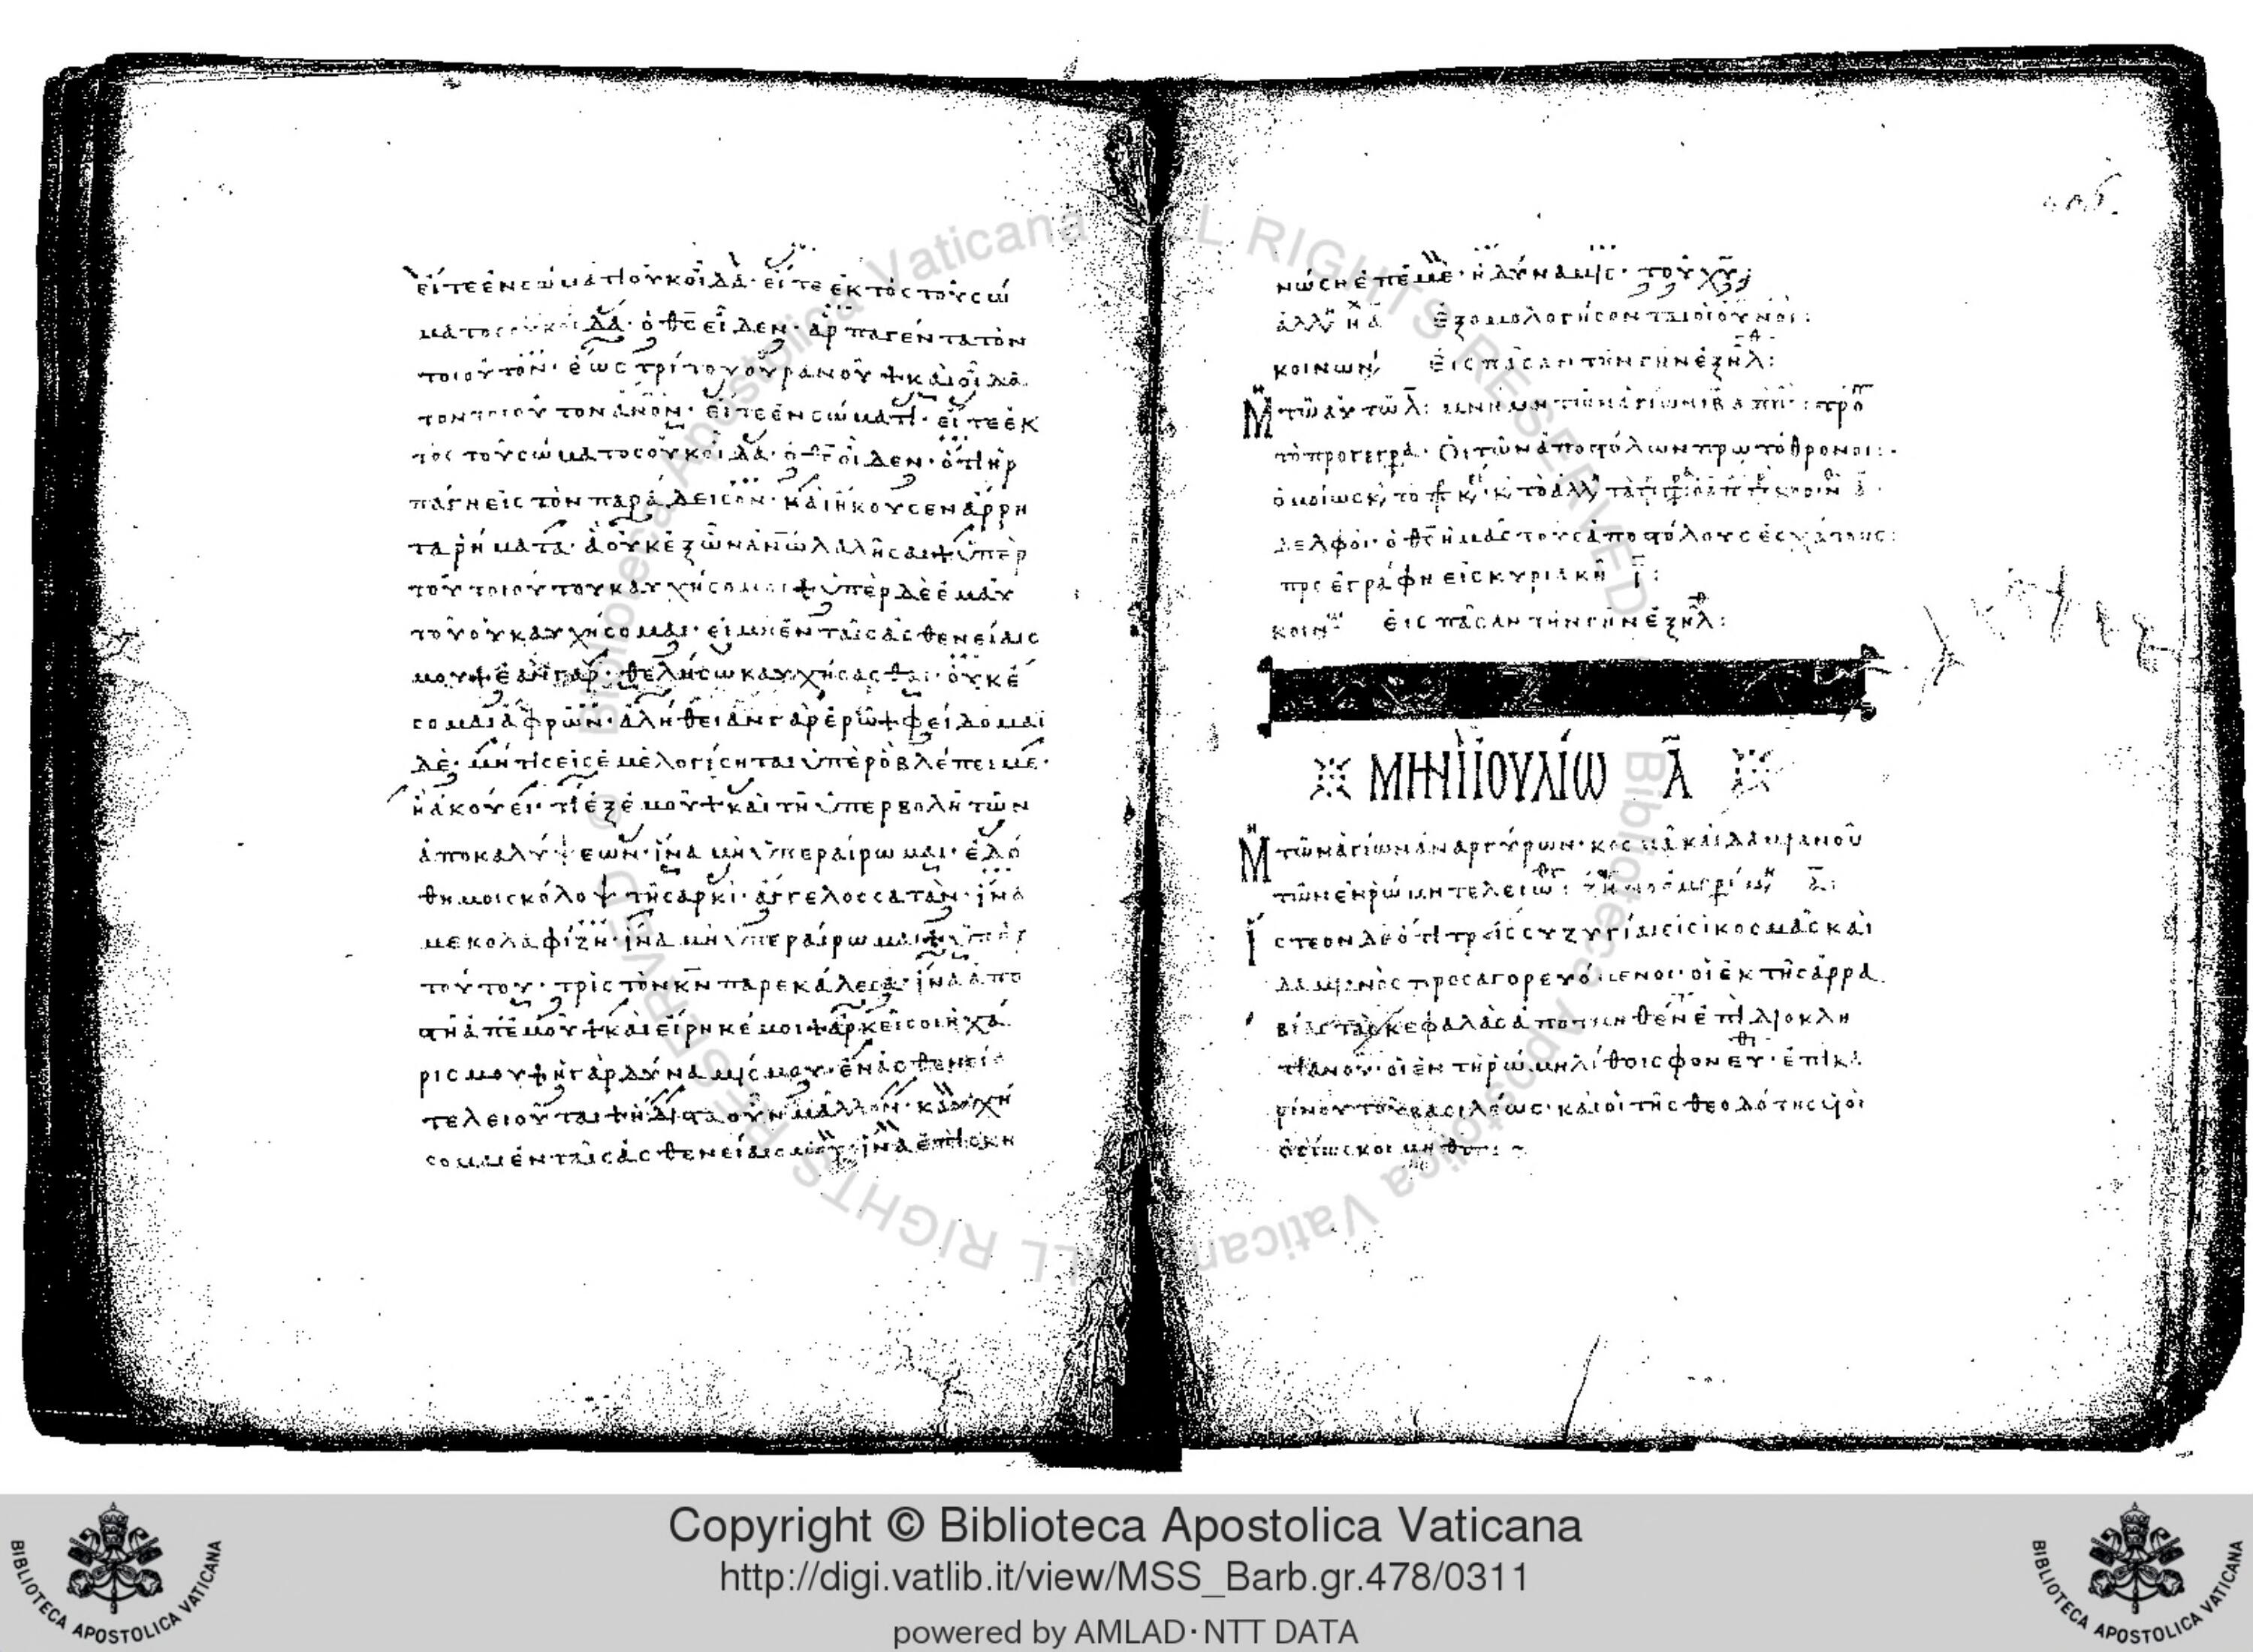 εἴτε ἐν σώματι οὐκ οἶδα· εἴτε ἐκτὸς τοῦ σώ
ματος οὐκ οἶδα· ὁ θ̅ς̅ οἶδεν· ἁρπαγέντα τὸν
τοιοῦτον· ἕως τρίτου οὐρανοῦ + καὶ οἶδα
τὸν τοιοῦτον ἄν̅ο̅ν̅· εἴτε ἐν σώματι· εἴτε ἐκ
τὸς τοῦ σώματος οὐκ οἶδα· ὁ θ̅ς̅ οἶδεν· ὅτι ἡρ
πάγη εἰς τὸν παράδεισον· καὶ ἤκουσεν ἄρρη
τα ῥήματα· ἃ οὐκ ἐξὸν ἀν̅ω̅ λαλῆσαι + ὑπὲρ
τοῦ τοιούτου καυχήσομαι + ὑπὲρ δὲ ἐμαυ
τοῦ οὐ καυχήσομαι· εἰ μὴ ἐν ταῖς ἀσθενείαις
μου + ἐὰν γὰρ θελήσω καυχήσασθαι· οὐκ ἔ
σομαι ἄφρων· ἀλήθειαν γὰρ ἐρῶ + φείδομαι
δὲ· μή τις εἰς ἐμὲ λογίσηται ὑπὲρ ὃ βλέπει με·
ἢ ἀκούει τι ἐξ ἐμοῦ + καὶ τῇ ὑπερβολῇ τῶν
ἀποκαλύψεων· ἵνα μὴ ὑπεραίρωμαι· ἐδό
θη μοι σκόλοψ τῇ σαρκί· ἄγγελος σατὰν· ἵνα
με κολαφίζῃ· ἵνα μὴ ὑπεραίρωμαι + ὑπὲρ
τούτου· τρὶς τὸν κ̅ν̅ παρεκάλεσα· ἵνα ἀπο
στῇ ἀπ' ἐμοῦ + καὶ εἴρηκέ μοι + ἀρκεῖ σοι ἡ χά
ρις μου + ἡ γὰρ δύναμίς μου ἐν ἀσθενείᾳ
τελειοῦται + ἥδιστα οὖν μᾶλλον καυχή
σομαι ἐν ταῖς ἀσθενείαις μου· ἵνα ἐπισκη
νώσῃ ἐπ' ἐμὲ· ἡ δύναμις· τοῦ χ̅υ̅:
ἀλλη ἐξομολογήσονται οἱ οὐνοι:
κοινων εἰς πᾶσαν τὴν γῆν ἐξηλ:
Μη τῶ αὐτῶ λ̅: μνήμη τῶν ἁγίων ιβ απο
τὸ προγεγρα· Οἱ τῶν ἀποστόλων πρωτόθρονοι:
δελφοι· ὁ θ̅ς̅ ἡμᾶς τοὺς ἀποστόλους ἐσχάτους:
προεγράφη εἰς κυριακῆ
κοιν εἰς πᾶσαν τὴν γῆν ἐξηλ:
ΜΗΝΙ ΙΟΥΛΙΩ Α̅
Μη τῶν ἁγίων ἀναργύρων· κοσμᾶ καὶ δαμιανοῦ
τῶν ἐν ῥώμη τελειωθ:
Ἰστέον δὲ ὅτι τρεῖς συζυγίαι εἰσὶ κοσμᾶς καὶ
δαμιανὸς προσαγορευόμενοι· οἱ ἐκ τῆς ἀρρα
βίας τὰς κεφαλὰς ἀποτμηθεν ἐπὶ διοκλη
τιανοῦ· οἱ ἐν τῇ ῥώμη λίθοις φονευθ· ἐπὶ κα
ρίνου τοῦ βασιλέως· καὶ οἱ τῆς θεοδότης υἱοὶ
Copyright © Biblioteca Apostolica Vaticana
http://digi.vatlib.it/view/MSS_Barb.gr.478/0311
powered by AMLAD·NTT DATA
BIBLIOTECA APOSTOLICA VATICANA
BIBLIOTECA APOSTOLICA VATICANA